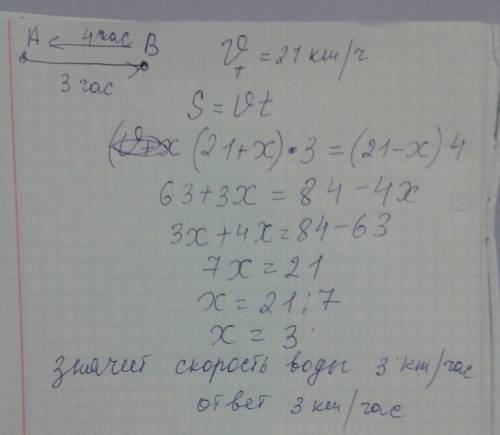 A 4 час B
3 час
𝒱т = 21 км/ч
S = 𝒱t
(21+x)•3 = (21-x)4
63+3x = 84-4x
3x+4x=84-63
7x=21
x=21:7
x=3
значит скорость воды 3 км/час
ответ 3 км/час